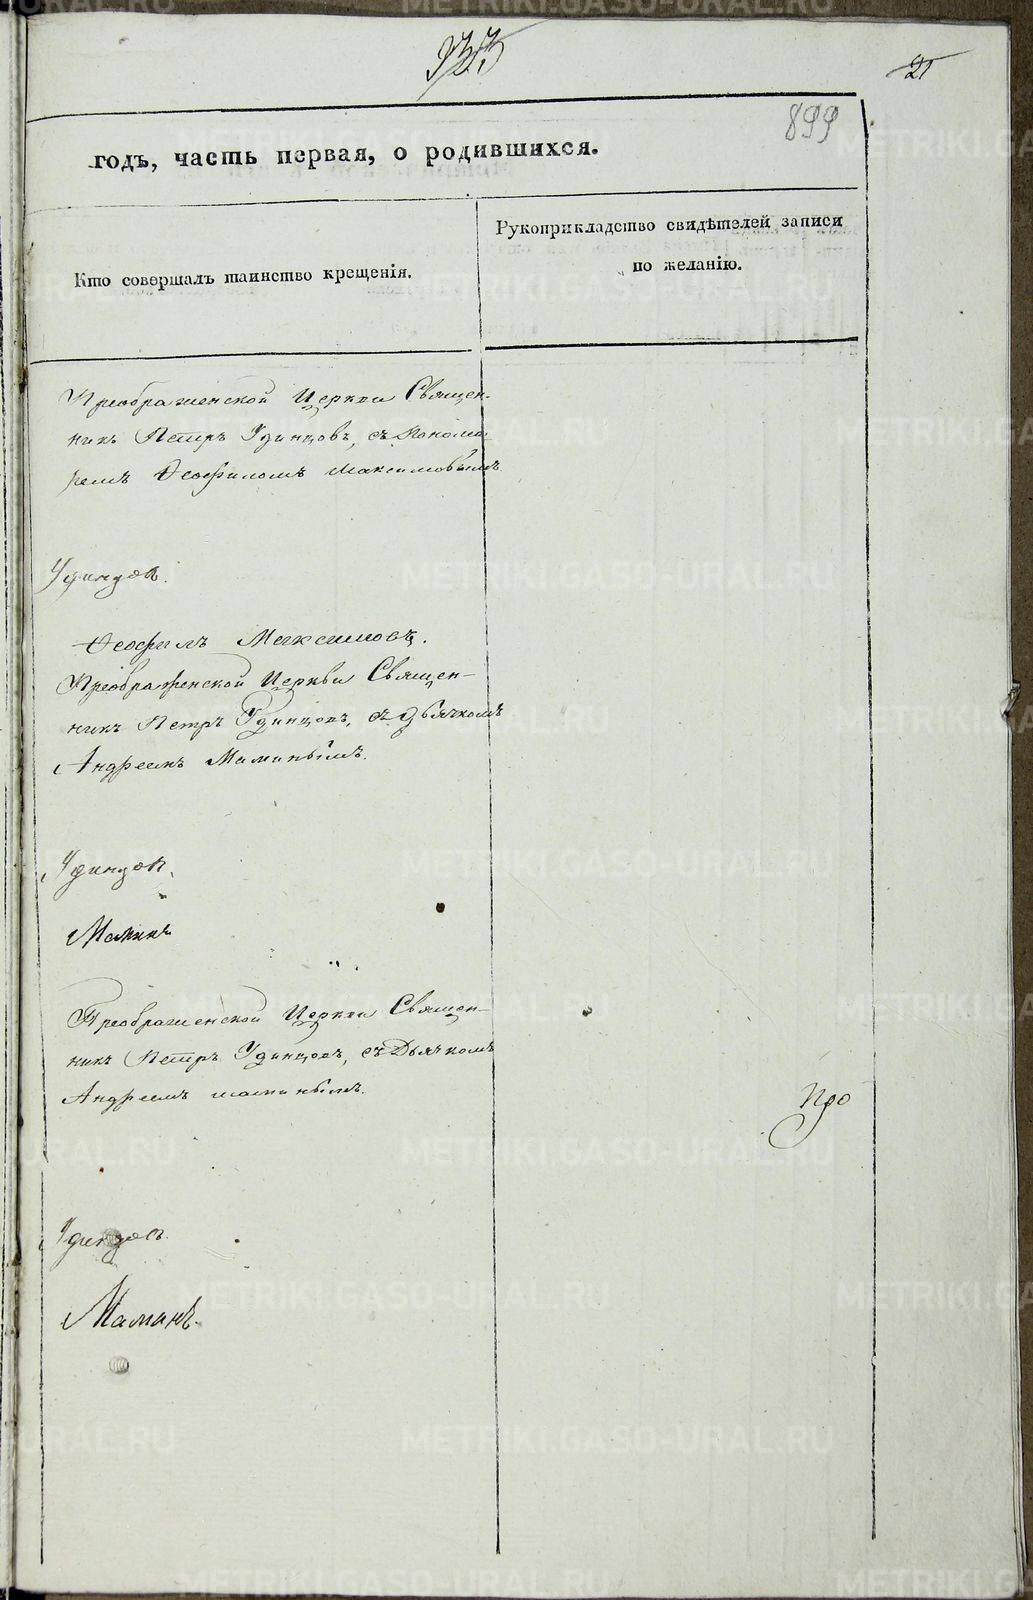 933
21
899
годъ, часть первая, о родившихся.
Кто совершалъ таинство крещенія.
Рукоприкладство свидѣтелей записи
по желанію.
Преображенской Церкви Священ-
никъ Петръ Удинцовъ, съ Понома-
ремъ Ѳеофиломъ Максимовымъ
Удинцов.
Ѳеофилъ Максимовъ.
Преображенской Церкви Священ-
никъ Петръ Удинцовъ, съ Дьячкомъ
Андреемъ Маминымъ.
Удинцов.
Маминъ
Преображенской Церкви Священ-
никъ Петръ Удинцовъ, съ Дьячкомъ
Андреемъ Маминымъ.
Удинцов.
Маминъ.
METRIKI.GASO-URAL.RU